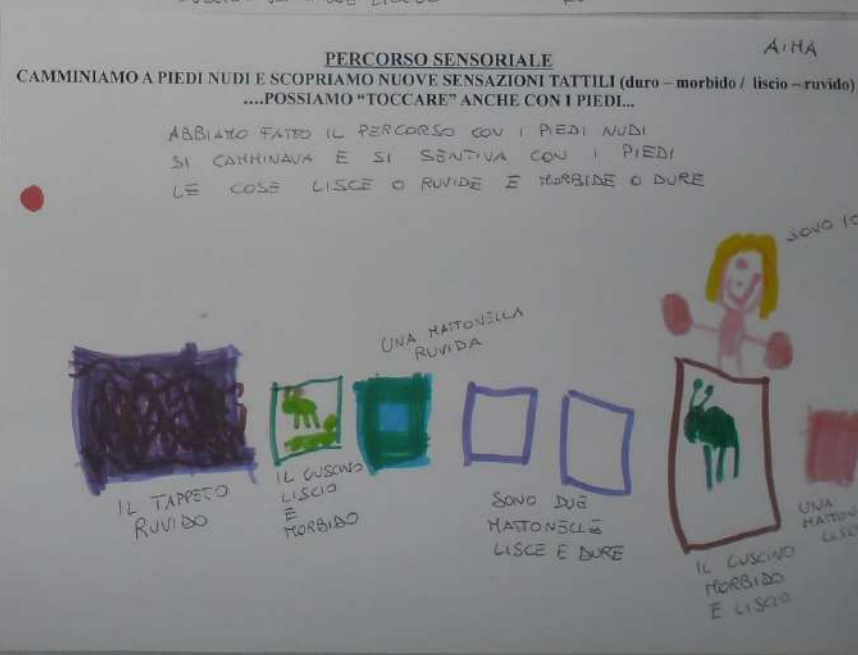 AIMA
PERCORSO SENSORIALE
CAMMINIAMO A PIEDI NUDI E SCOPRIAMO NUOVE SENSAZIONI TATTILI (duro – morbido / liscio – ruvido)
….POSSIAMO “TOCCARE” ANCHE CON I PIEDI...
ABBIAMO FATTO IL PERCORSO CON I PIEDI NUDI
SI CAMMINAVA E SI SENTIVA CON I PIEDI
LE COSE LISCE O RUVIDE E MORBIDE O DURE
SONO IO
UNA MATTONELLA
RUVIDA
IL TAPPETO
RUVIDO
IL CUSCINO
LISCIO
E
MORBIDO
SONO DUE
MATTONELLE
LISCE E DURE
IL CUSCINO
MORBIDO
E LISCIO
UNA